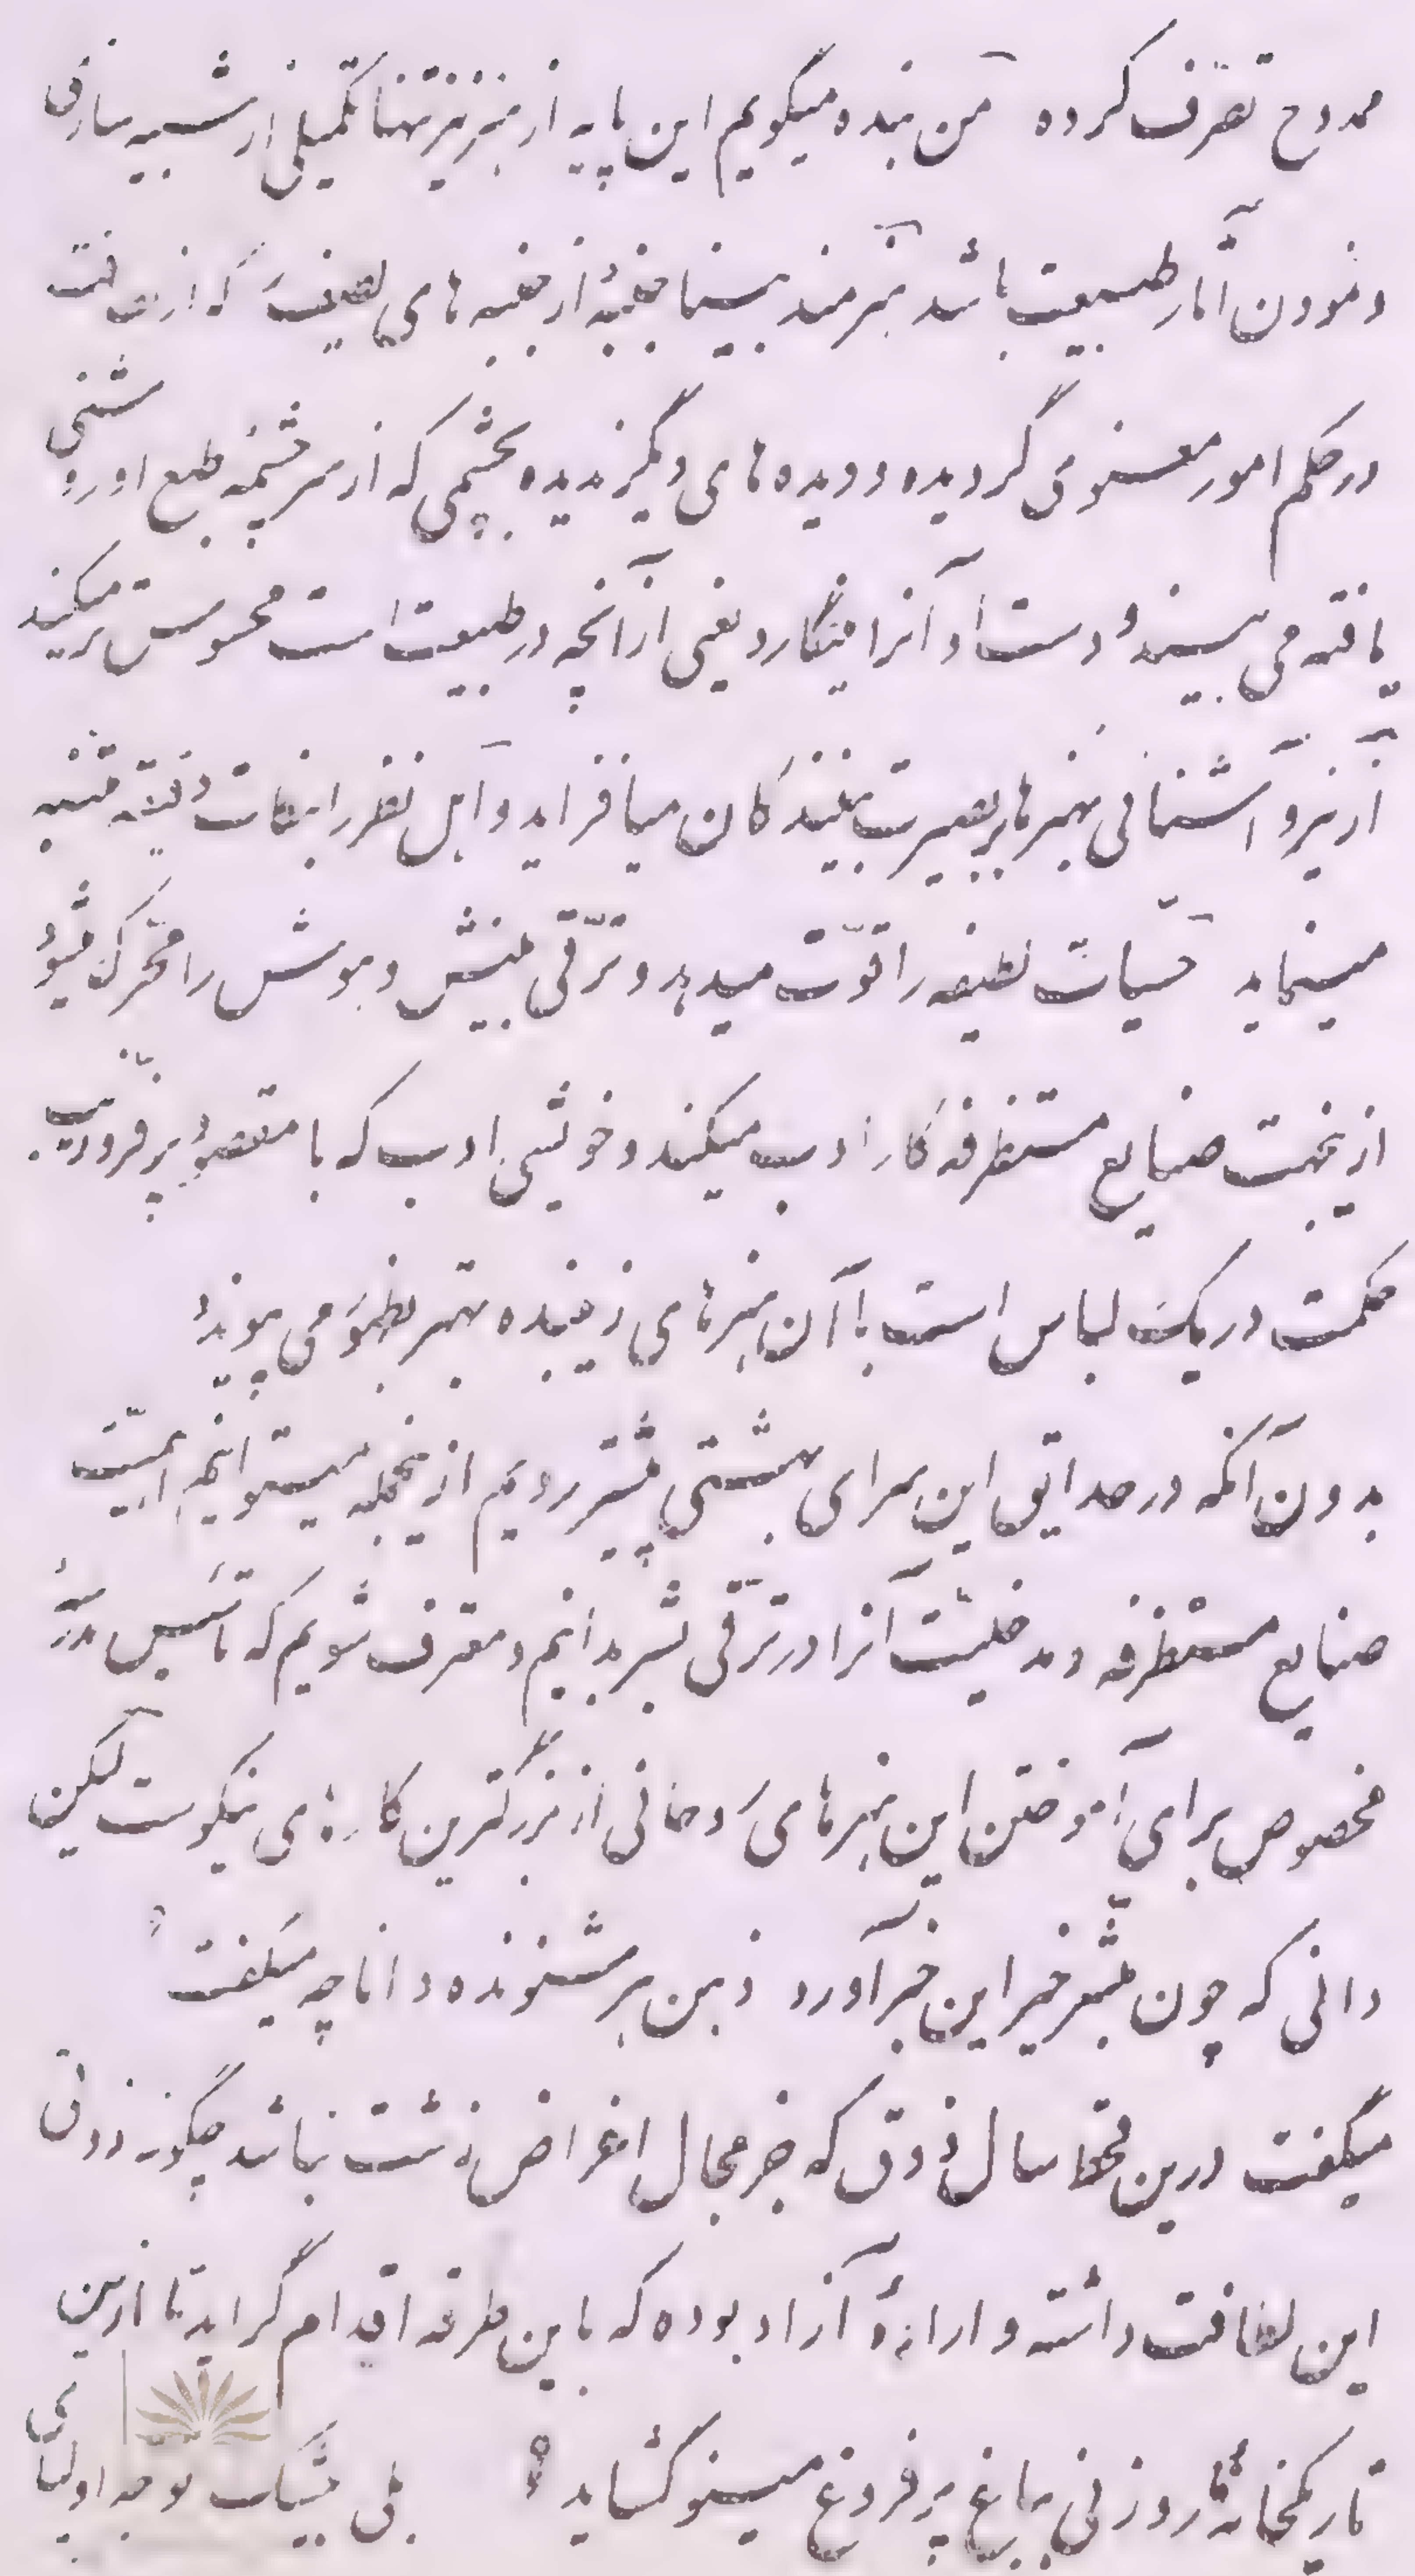 ممدوح تصرّف کرده من بنده میگویم این پایه از هنر نیز تنها تکمیلی از شبیه سازی
و نمودن آثار طبیعت باشد هنرمند بسیما جنبهٔ از جنبه های لطیفیست که از لطافت
در حکم امور معنوی گردیده و دیده های دیگر ندیده بچشمی که از سرچشمه طبع او روشنی
یافته می بیند و دست او آنرا مینگارد یعنی از آنچه در طبیعت است محسوس تر میکند
ازینرو آشنائی بهنرها بر بصیرت بینندگان میافزاید و اهل نظر را بنکات دقیقه متنبه
مینماید حسّیات لطیفه را قوّت میدهد و ترّقی بینش و هوش را محرّک میشود
ازینجهت صنایع مستظرفه کار ادب میکند و خوشی ادب که با مقصود پر فرّ و زیب
حکمت در یک لباس است با آن هنرهای زیبنده بهتر بظهور می پیوندد
بدون آنکه در حدایق این سرای بهشتی پیشتر رویم ازینجمله میتوانیم اهمیّت
صنایع مستظرفه و مدخلیّت آنرا در ترّقی بشر بدانیم و معترف شویم که تأسیس مدرسهٔ
مخصوص برای آموختن این هنرهای روحانی از بزرگترین کارهای نیکوست لیکن
دانی که چون مبشّر خیر این خبر آورد ذهن هر شنونده دانا چه میگفت
میگفت درین قحط سال ذوق که جز مجال اغراض زشت نباشد چگونه ذوقی
این لطافت داشته و ارادهٔ آزاد بوده که باین طرفه اقدام گراید تا ازین
تاریکخانهٔ ما روزنی بباغ پر فروغ مینو گشاید؟ بلی بیشک توجه اولیای